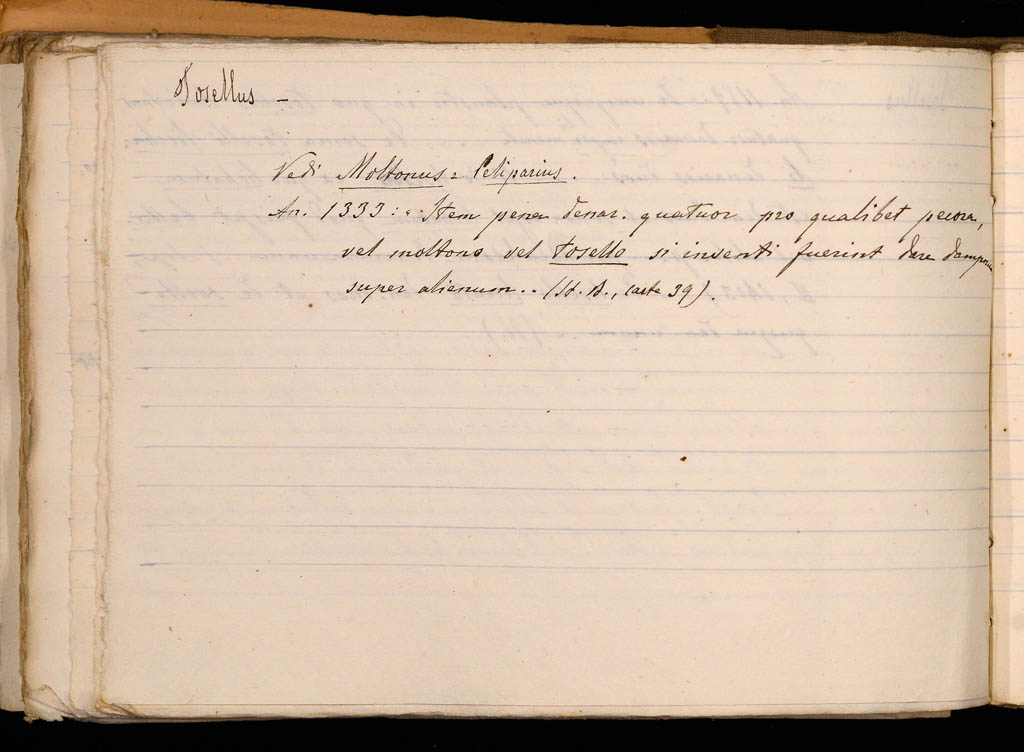 Tosellus –
Vedi Moltonus = Peliparius.
An. 1333: "Item pena denar. quatuor pro qualibet pecora,
vel moltono vel tosello si inventi fuerint dare dampnum
super alienum.. (St. B., carte 39).